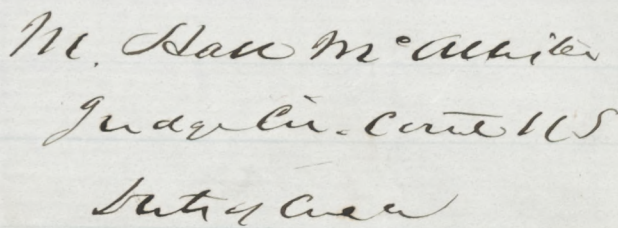 M. Hall McAllister
Judge Cir. Court US
Dist of Cala